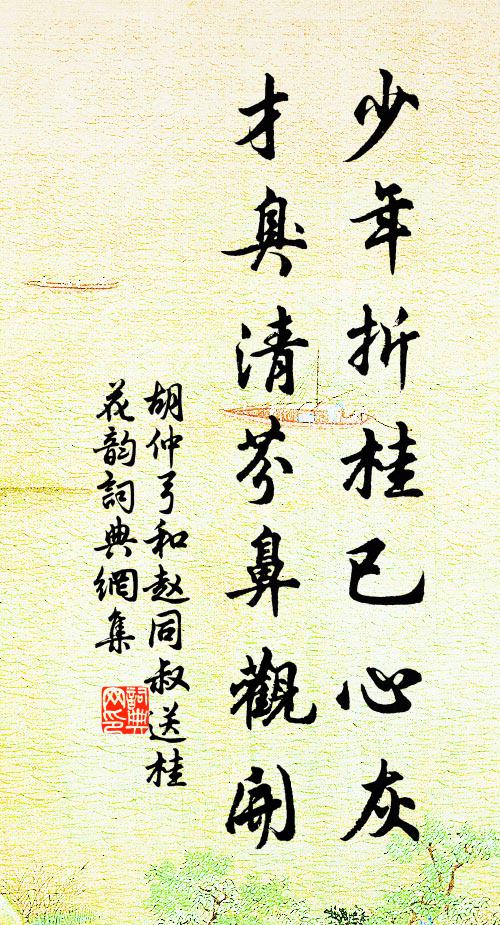 少年折桂已心灰
才臭清芬鼻觀開
胡仲弓和赵同叔送桂
花韵詞典網集
詞典
网印